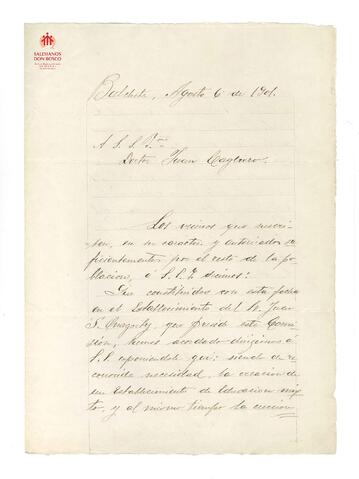 SALESIANOS
DON BOSCO
Agosto 6 de 1901.
A S. S. Y.ma
Doctor Juan Cagliero.
Los vecinos que suscri-
ben, en su caracter y autorizados su
ficientemente por el resto de la po
blacion, á S.S.Y. decimos:
Que constituidos con esta fecha
en el Establecimiento del Sr. Juan
que preside esta Comi
sión, hemos acordado dirigirnos á
S.S. exponiendole que: siendo de re
conocida necesidad, la creacion de
un Establecimiento de Educacion mix
to, y al mismo tiempo la ereccion